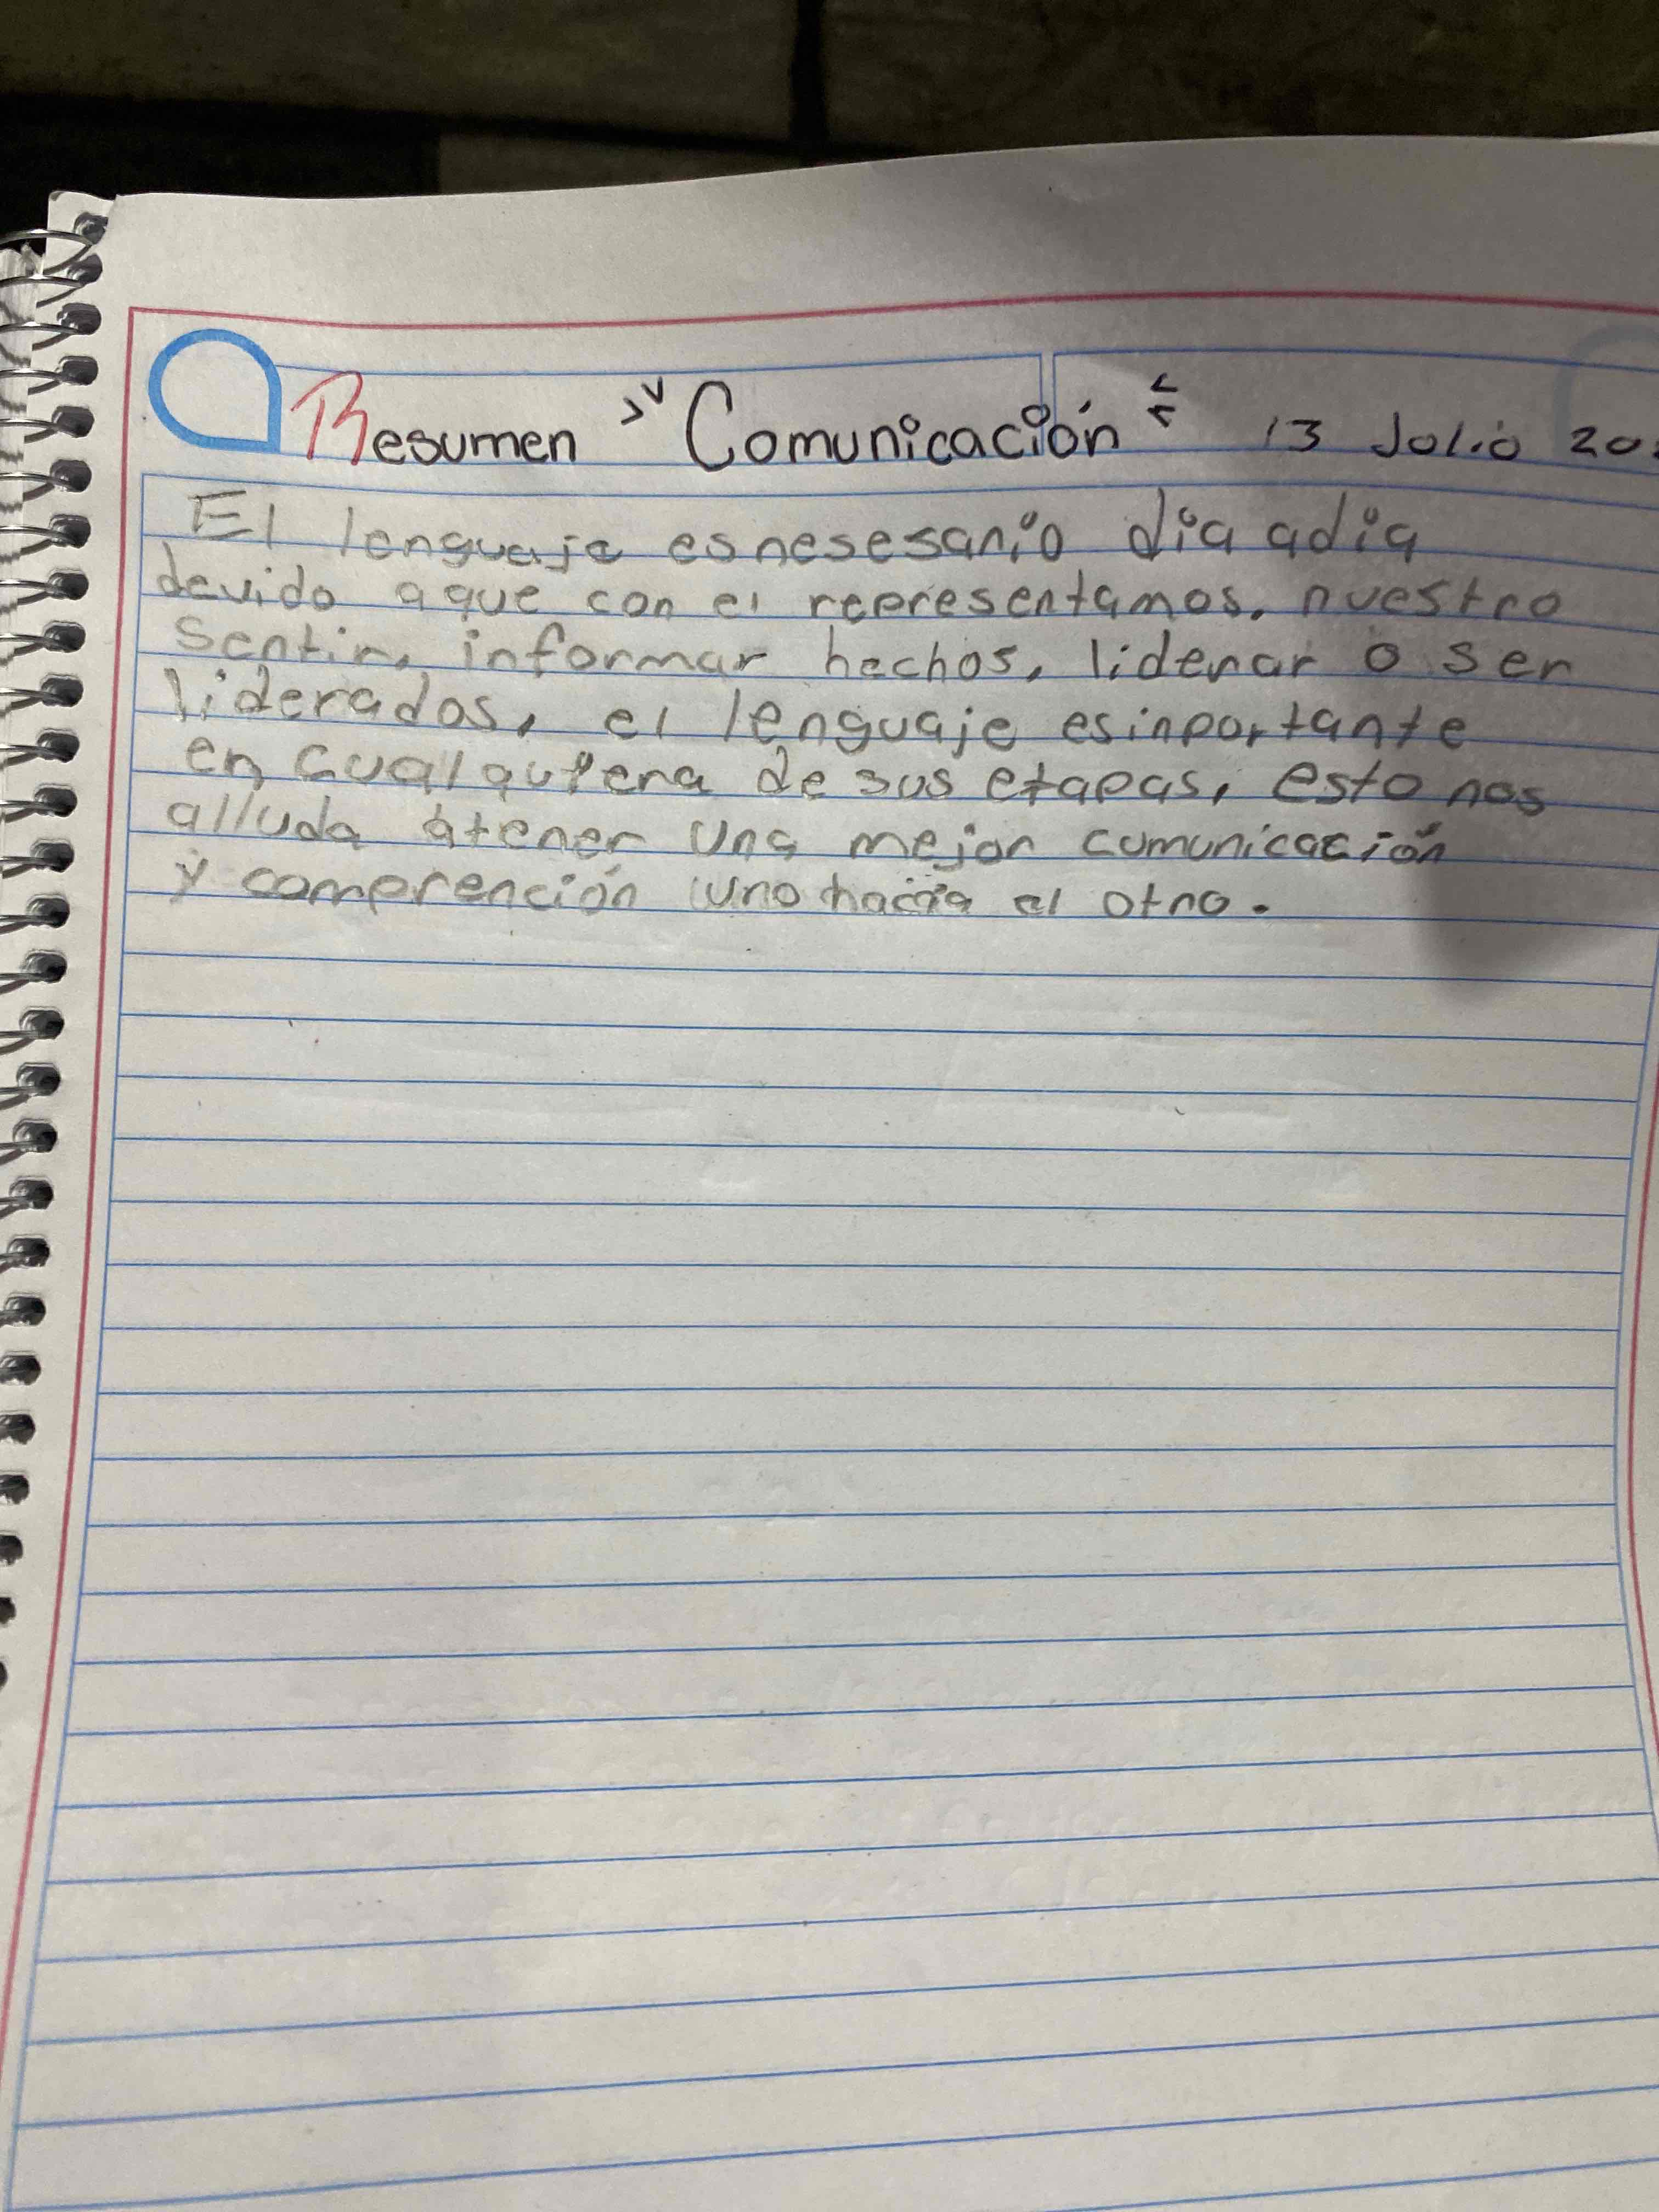 Resumen "Comunicación" 13 Julio 20
El lenguaje es nesesario dia adia
devido aque con el representamos, nuestro
sentir, informar hechos, liderar o ser
liderados, el lenguaje es inportante
en cualquiera de sus etapas, esto nos
alluda atener una mejor comunicación
y comprención uno hacia el otro.